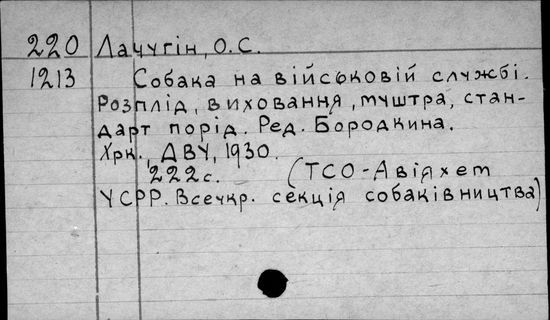 220 Лачугін, О.С.
1213 Собака на військовій службі.
Розплід, виховання, муштра, стан-
дарт порід. Ред. Бородкина.
Хрк., ДВУ, 1930.
222с. (ТСО-Авіяхет
УСРР. Всеукр. секція собаківництва)